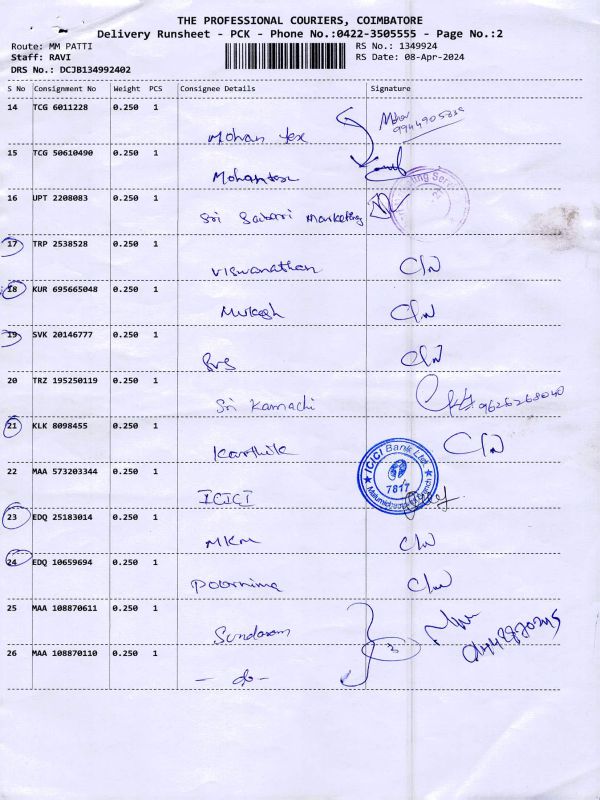 THE PROFESSIONAL COURIERS, COIMBATORE
Delivery Runsheet - PCK - Phone No.:0422-3505555 - Page No.:2
Route: MM PATTI RS No.: 1349924
Staff: RAVI RS Date: 08-Apr-2024
DRS No.: DCJB134992402
S No Consignment No Weight PCS Consignee Details Signature
14 TCG 6011228 0.250 1 Mohan Tex
15 TCG 50610490 0.250 1 Mohantex
16 UPT 2208083 0.250 1 Sri Saibari Marketing
17 TRP 2538528 0.250 1 Viswanathan C/N
18 KUR 695665048 0.250 1 Mukesh C/N
19 SVK 20146777 0.250 1 C/N
20 TRZ 195250119 0.250 1 Sri Kamachi 9626268040
21 KLK 8098455 0.250 1 Karthik C/N
22 MAA 573203344 0.250 1 ICICI ICICI Bank Ltd. 7817
23 EDQ 25183014 0.250 1 MKM C/N
24 EDQ 10659694 0.250 1 Poornima C/N
25 MAA 108870611 0.250 1 Sundaram
26 MAA 108870110 0.250 1 - do - 3